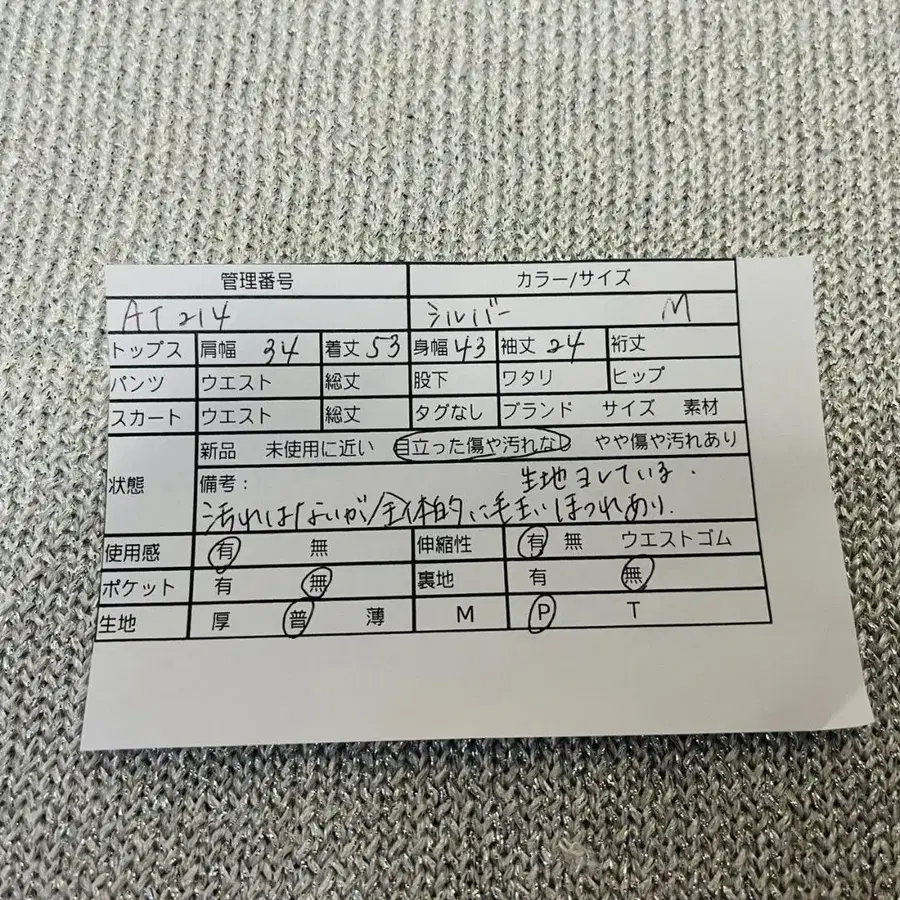 管理番号 カラー/サイズ
AT214 シルバー M
トップス 肩幅 34 着丈 53 身幅 43 袖丈 24 裄丈
パンツ ウエスト 総丈 股下 ワタリ ヒップ
スカート ウエスト 総丈 タグなし ブランド サイズ 素材
状態 新品 未使用に近い 目立った傷や汚れなし やや傷や汚れあり
備考： 生地ヨレている.
汚れはないが/全体的に毛玉いほつれあり.
使用感 有 無 伸縮性 有 無 ウエストゴム
ポケット 有 無 裏地 有 無
生地 厚 普 薄 M P T